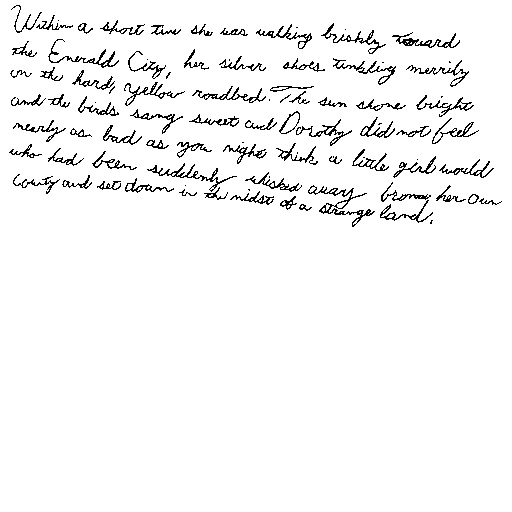 Within a short time she was walking briskly toward
the Emerald City, her silver shoes tinkling merrily
on the hard, yellow roadbed. The sun shone bright
and the birds sang sweet and Dorothy did not feel
nearly as bad as you might think a little girl would
who had been suddenly whisked away from her own
county and set down in the midst of a strange land.